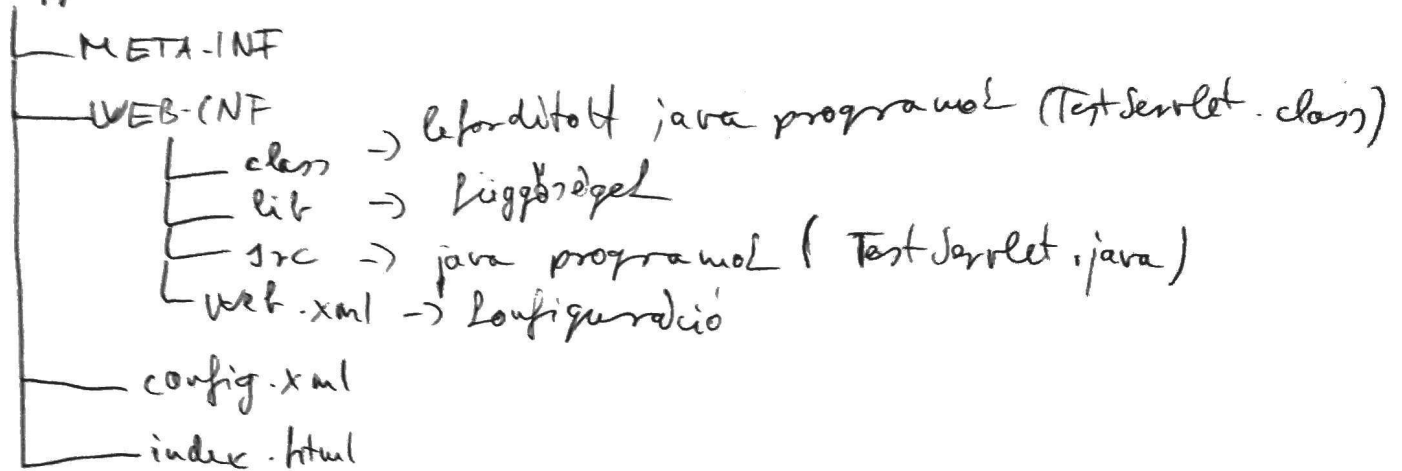 META-INF
WEB-INF
class -> lefordított java programok (TestServlet.class)
lib -> függőségek
src -> java programok (TestServlet.java)
web.xml -> konfiguráció
config.xml
index.html